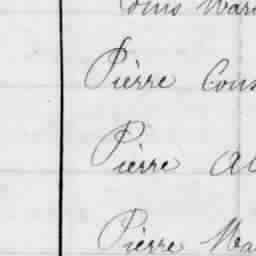 Pierre Cons
Pierre Al
Pierre Ma